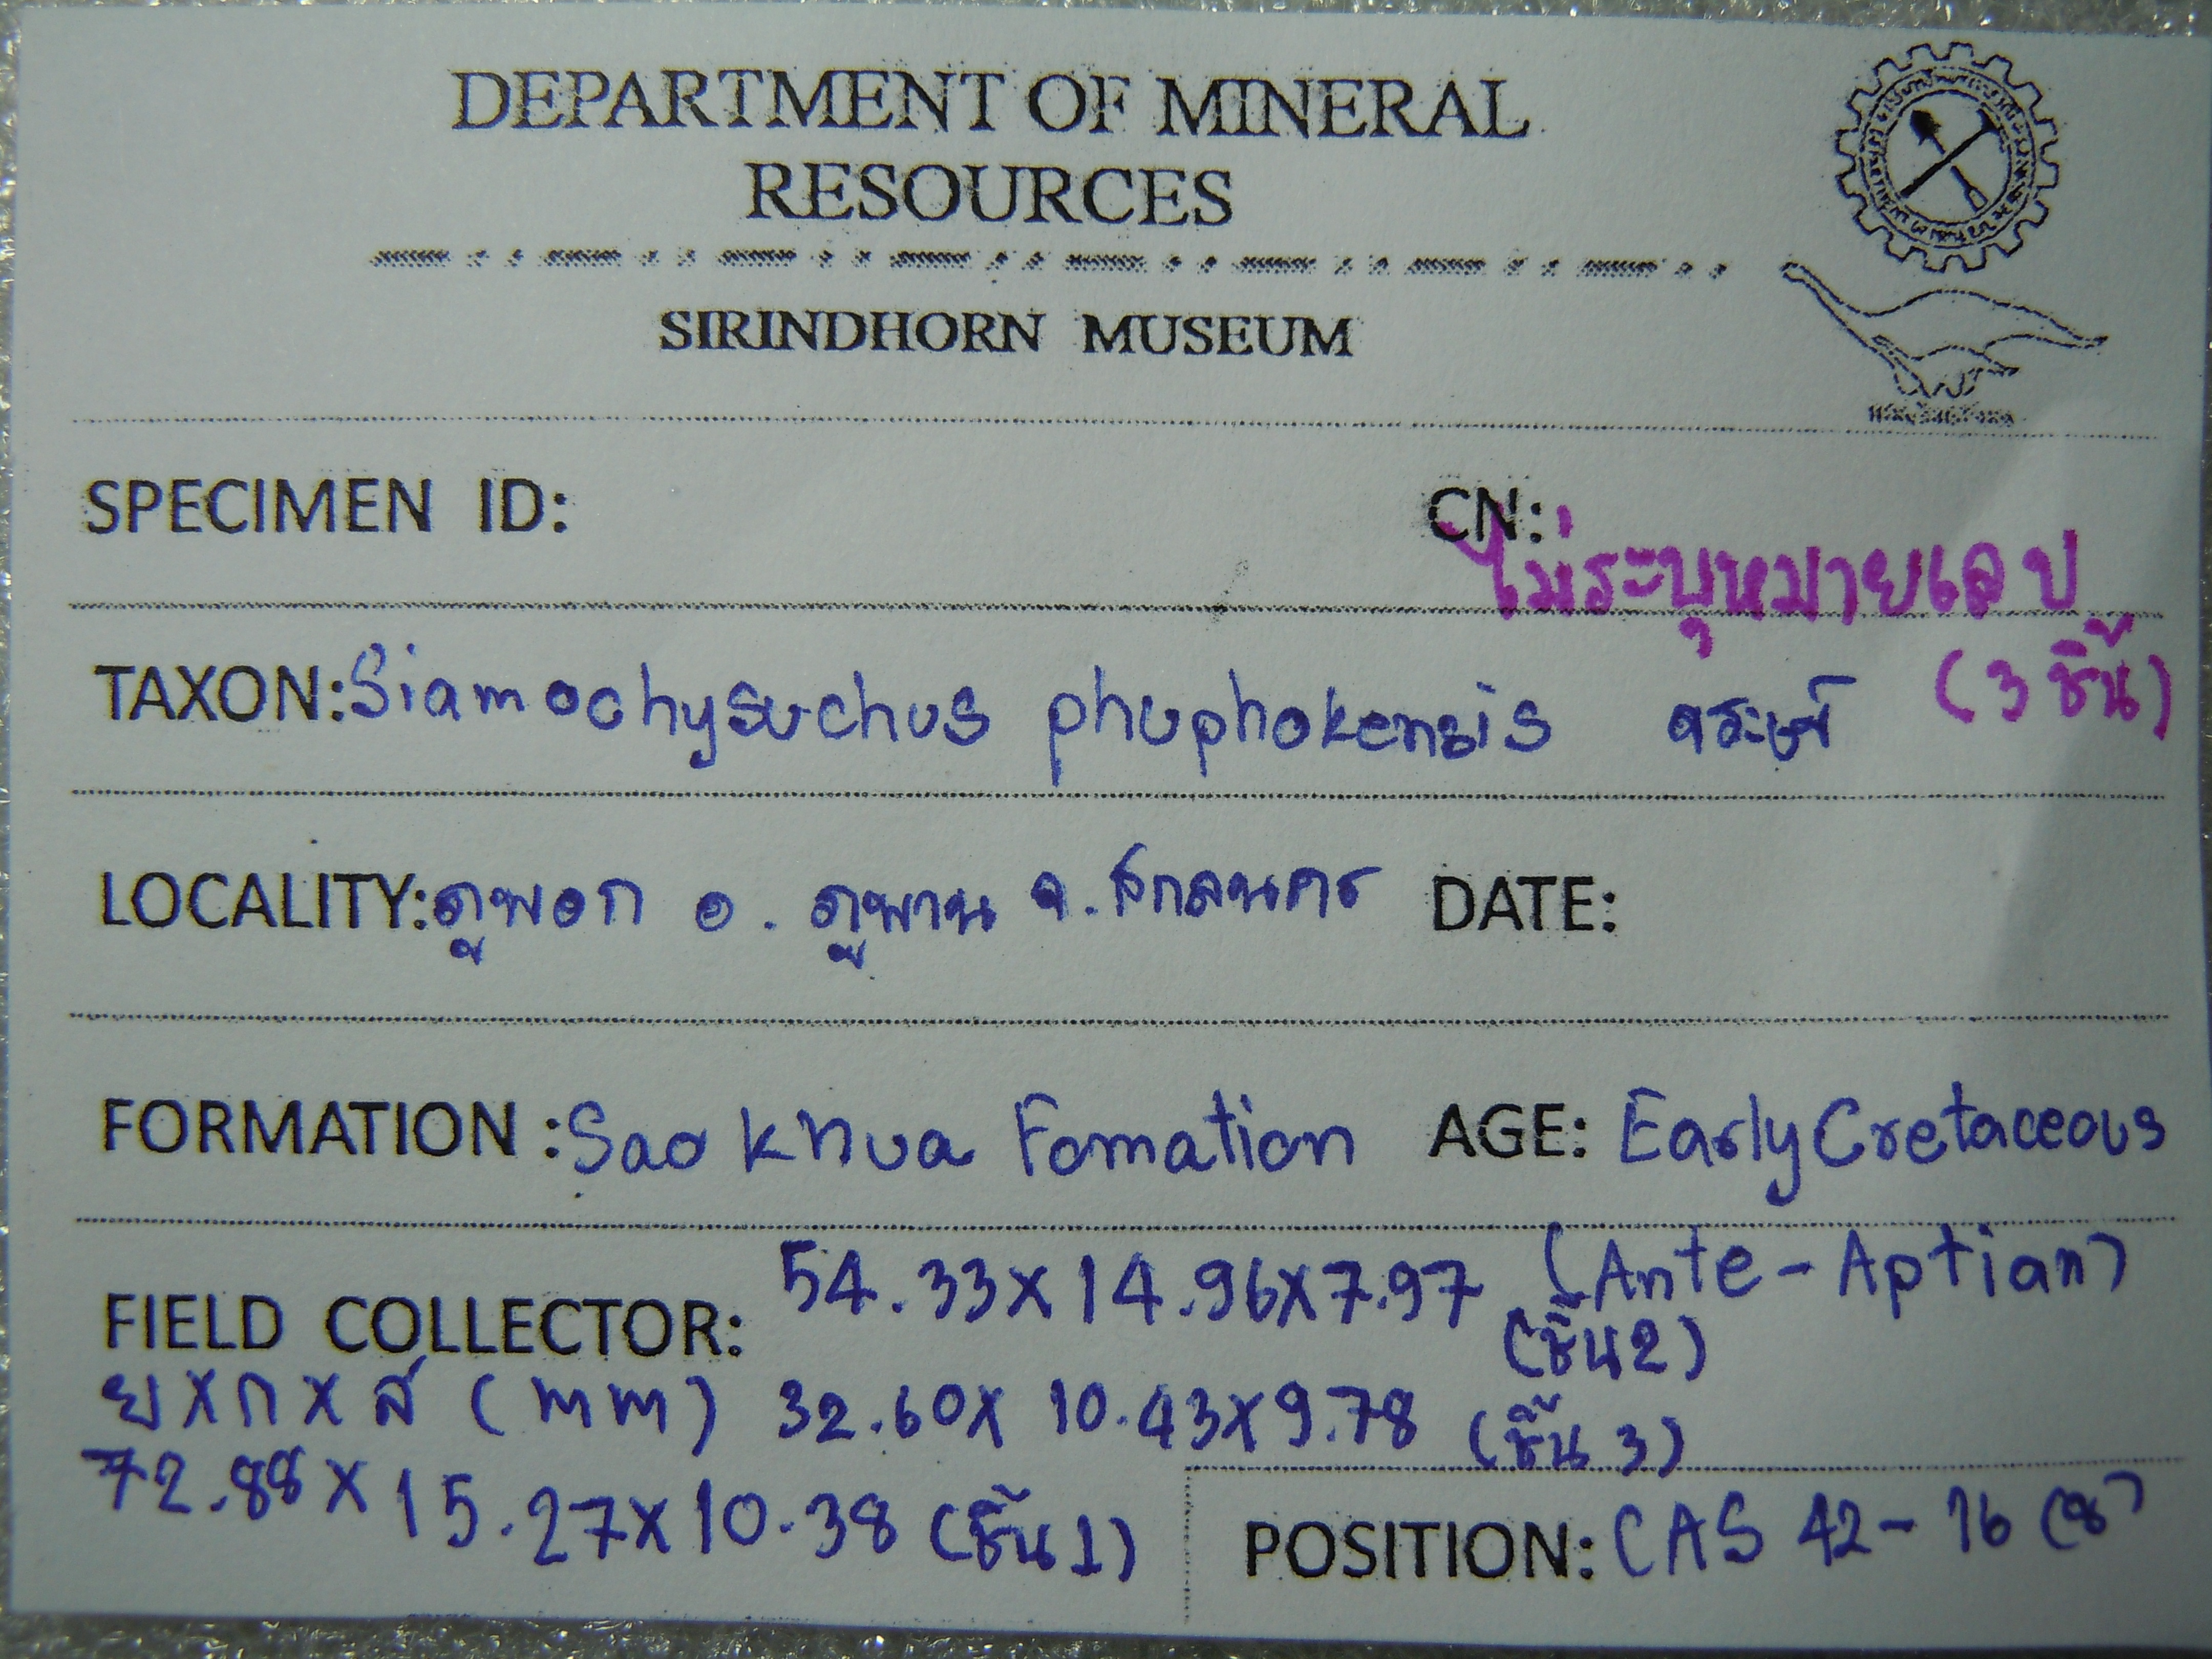 DEPARTMENT OF MINERAL
RESOURCES
SIRINDHORN MUSEUM
SPECIMEN ID: CN:
ไม่ระบุหมายเลข
(3 ชิ้น)
TAXON: Siamochysuchus phuphokensis จระเข้
LOCALITY: ภูพอก อ. ภูพาน จ. สกลนคร DATE:
FORMATION : Sao Khua Fomation AGE: Early Cretaceous
(Ante-Aptian)
FIELD COLLECTOR: 54.33x14.96x7.97 (ชิ้น2)
ย x ก x ส (mm) 32.60x 10.43x9.78 (ชิ้น 3)
72.88 x 15.27x10.38 (ชิ้น1)
POSITION: CAS 42-16 (8)